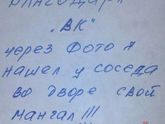 БЛАГОДАРЯ
„ВК"
через Фото я
нашел у соседа
во дворе свой
мангал !!!